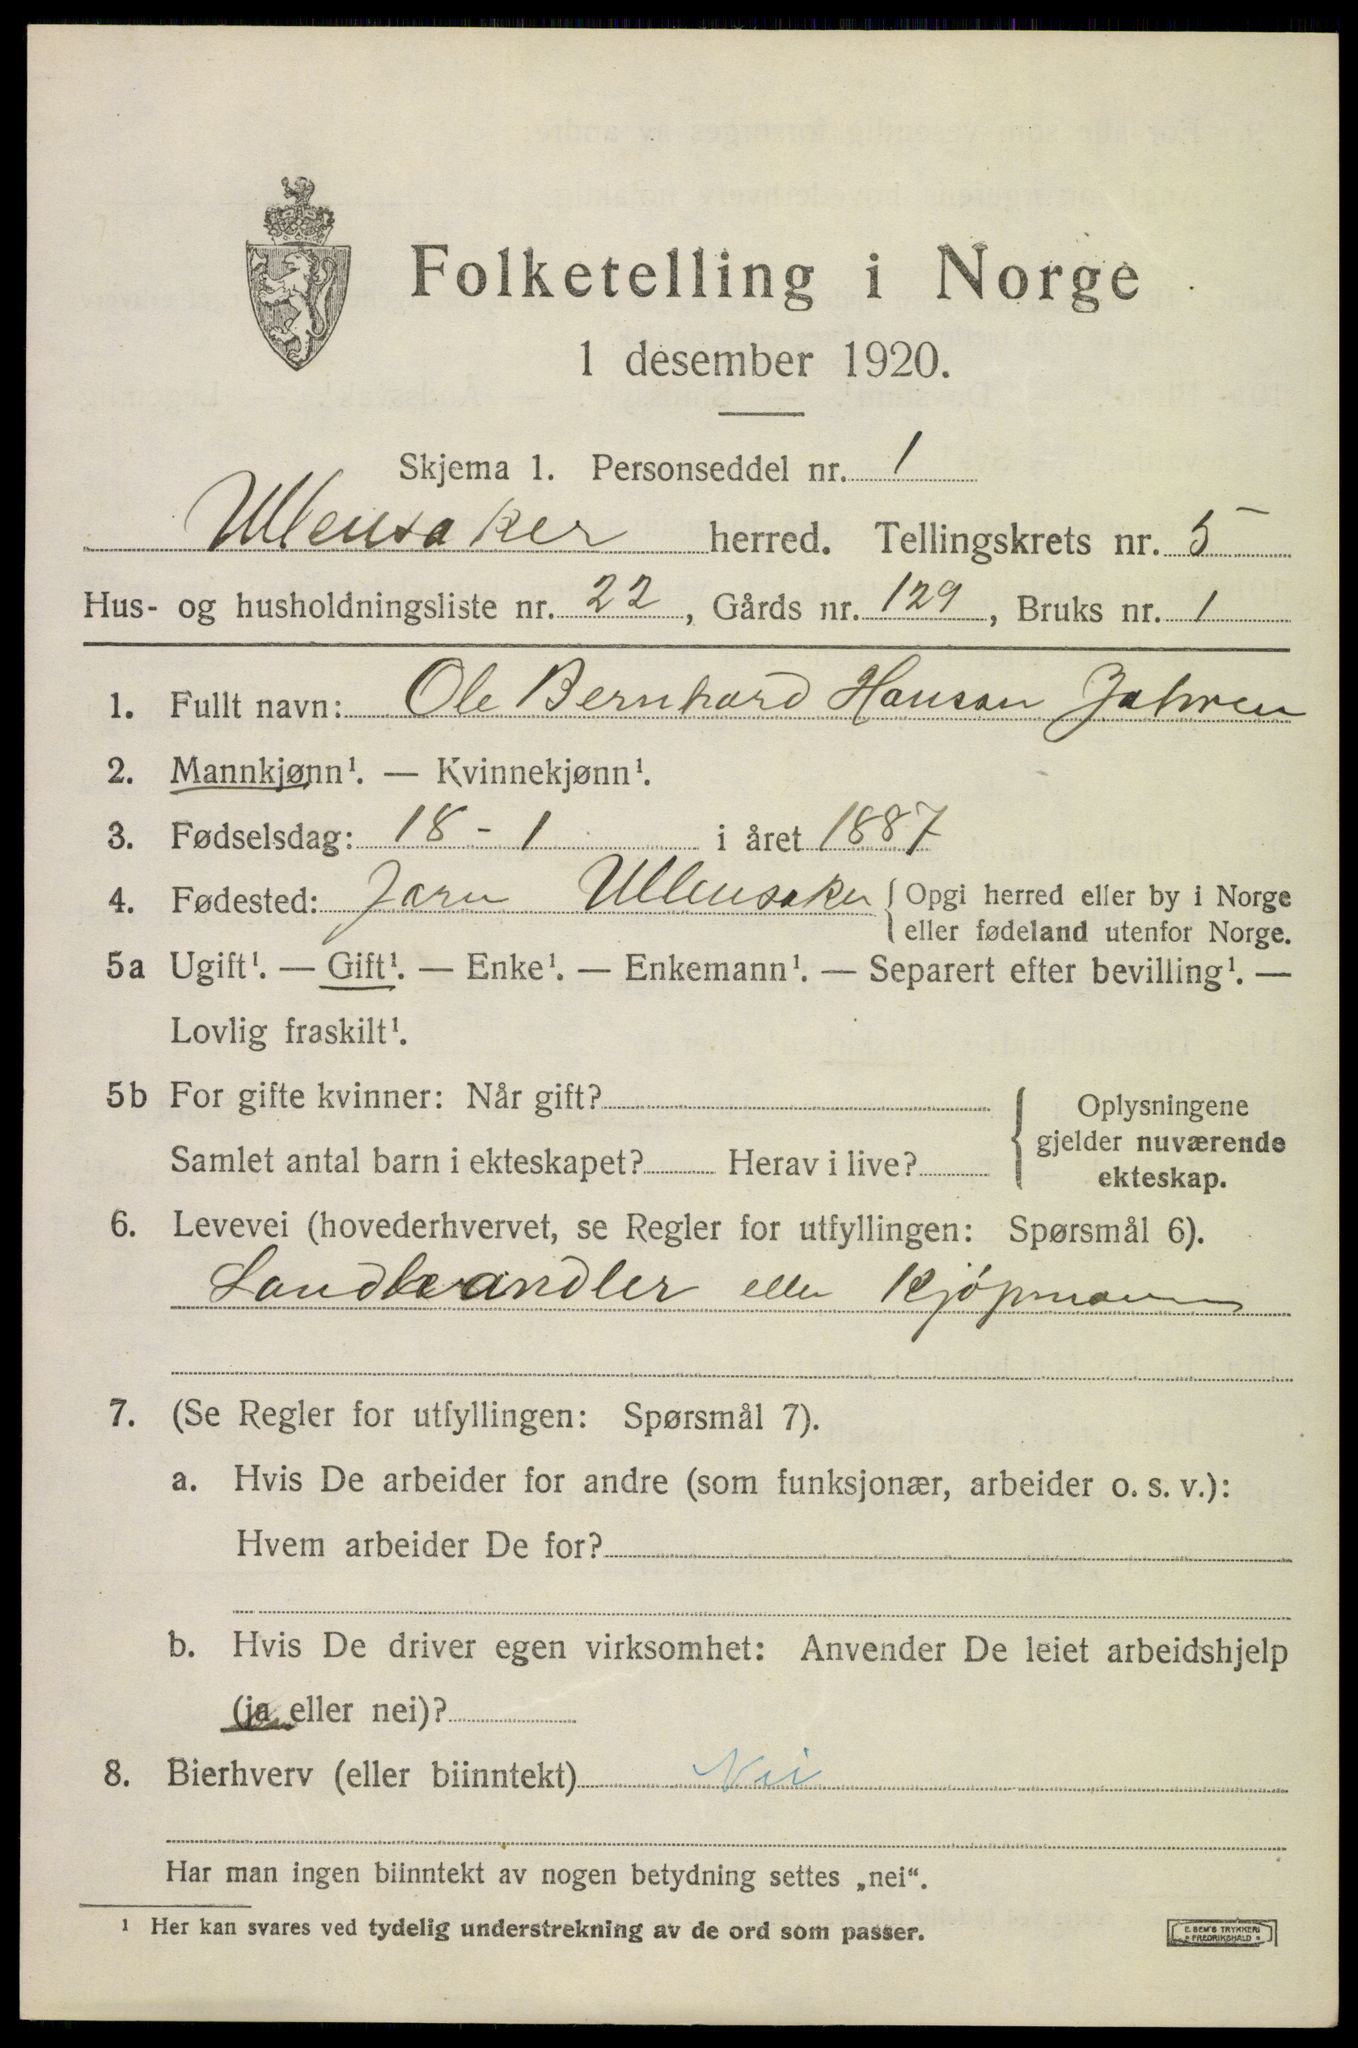 Folketelling i Norge
1 desember 1920.
Skjema 1. Personseddel nr. 1
Ullensaker herred. Tellingskrets nr. 5
Hus- og husholdningsliste nr. 22, Gårds nr. 129, Bruks nr. 1
1. Fullt navn: Ole Bernhard Hansen Jahren
2. Mannkjønn¹. — Kvinnekjønn¹.
3. Fødselsdag: 18 - 1 i året 1887
4. Fødested: Ullensaker { Opgi herred eller by i Norge
eller fødeland utenfor Norge.
5a Ugift¹. — Gift¹. — Enke¹. — Enkemann¹. — Separert efter bevilling¹. —
Lovlig fraskilt¹.
5b For gifte kvinner: Når gift?
Samlet antal barn i ekteskapet? Herav i live?
Oplysningene
gjelder nuværende
ekteskap.
6. Levevei (hovederhvervet, se Regler for utfyllingen: Spørsmål 6).
Landhandler eller Kjöpmann
7. (Se Regler for utfyllingen: Spørsmål 7).
a. Hvis De arbeider for andre (som funksjonær, arbeider o. s. v.):
Hvem arbeider De for?
b. Hvis De driver egen virksomhet: Anvender De leiet arbeidshjelp
(ja eller nei)?
8. Bierhverv (eller biinntekt) Nei
Har man ingen biinntekt av nogen betydning settes „nei“.
¹ Her kan svares ved tydelig understrekning av de ord som passer.
E. SEM'S TRYKKERI
FREDRIKSHALD